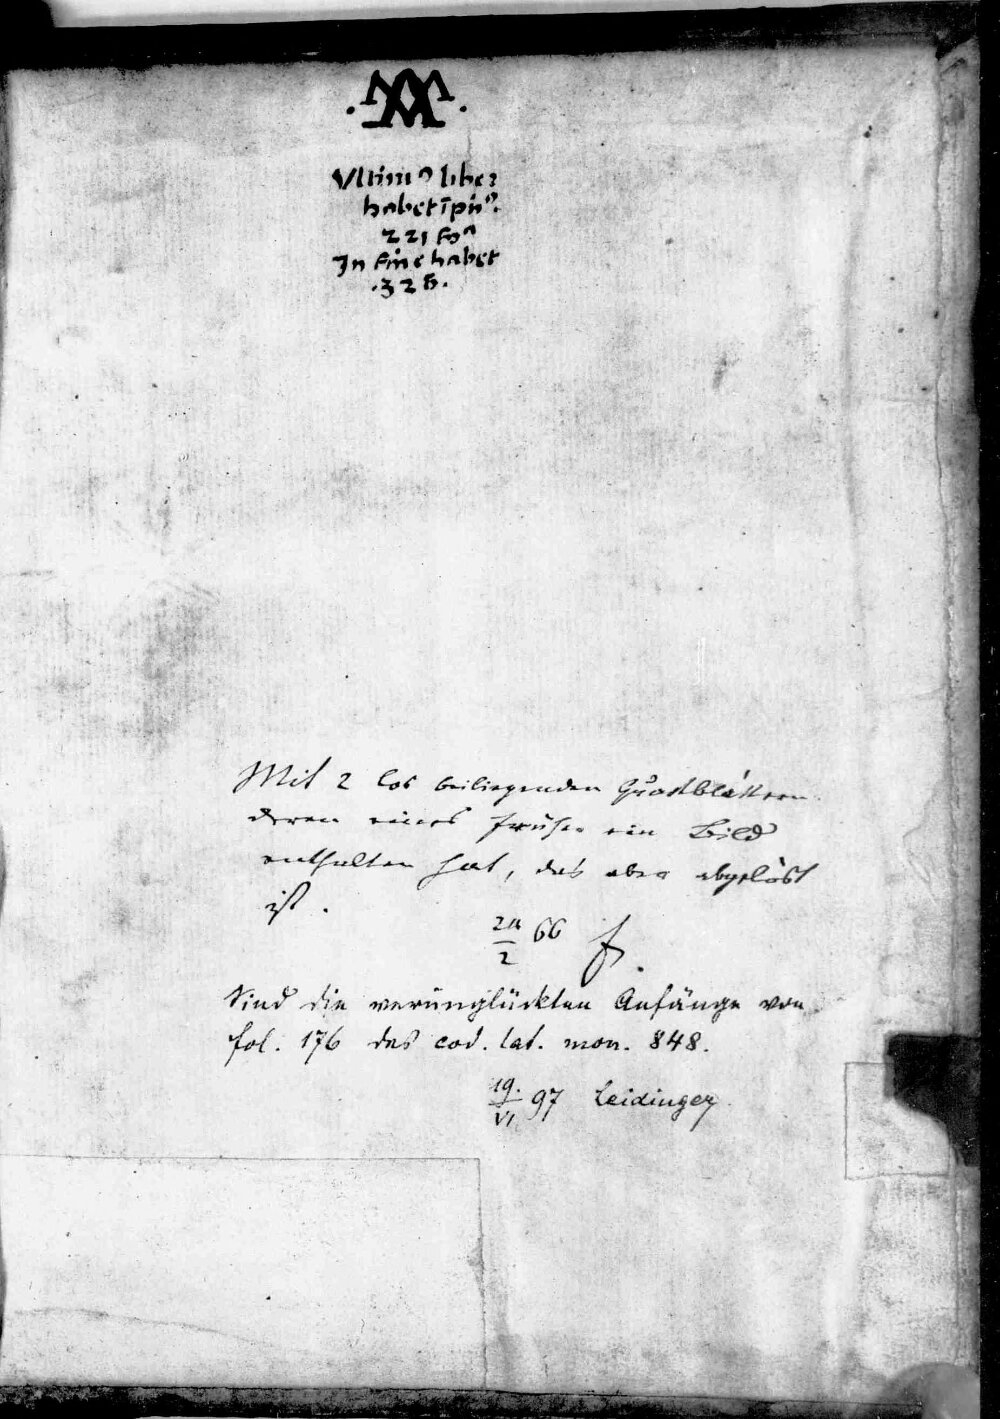 Ultimꝰ liber
habet ī pn̄ᵒ.
221 foᵃ
In fine habet
.328.
Mit 2 los beiliegenden Quartblättern
deren eines früher ein Bild
enthalten hat, das aber abgelöst
ist.
24/2 66
Sind die verunglückten Anfänge von
fol. 176 des cod. lat. mon. 848.
19./VI 97 Leidinger